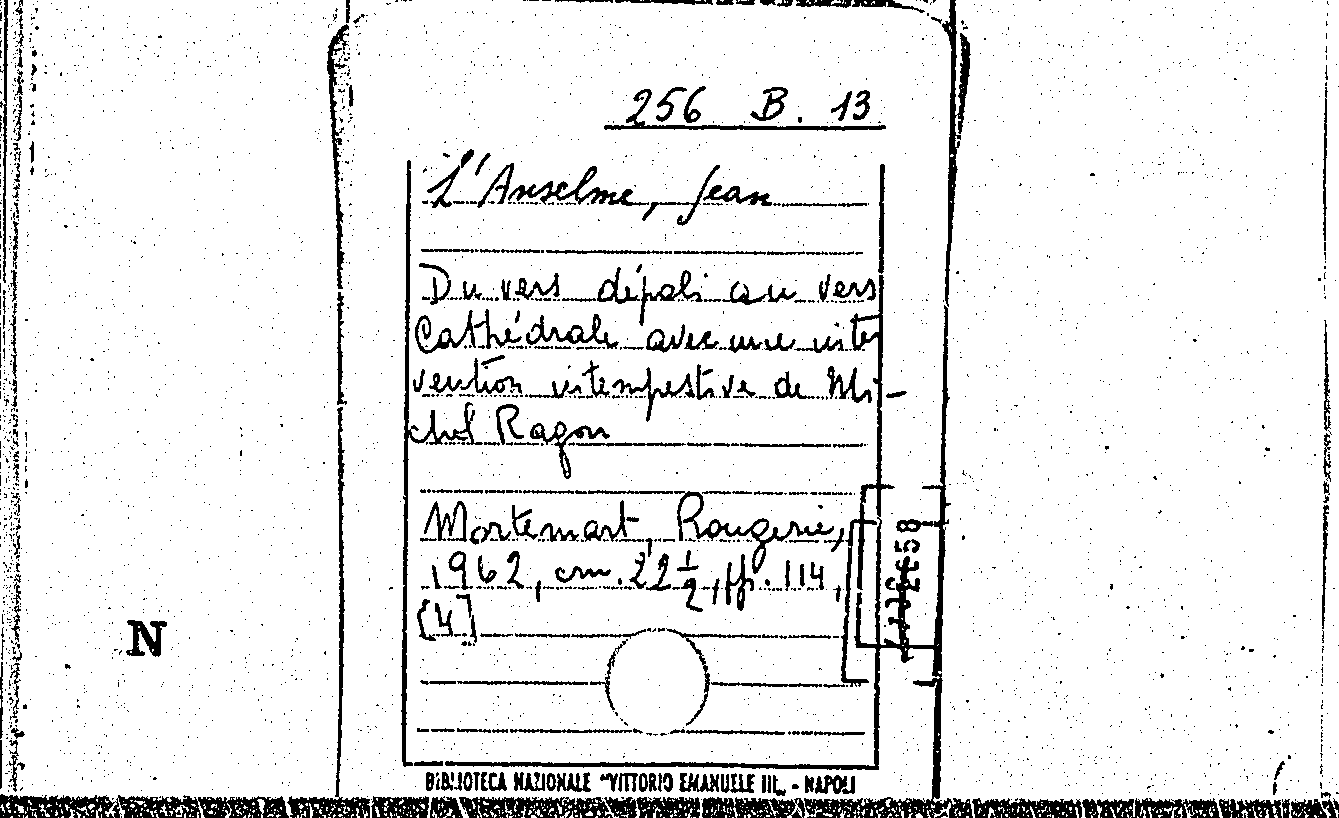 256 B. 13
L'Anselme, Jean
Du vers dépoli au vers
Cathédrale avec une inter
vention intempestive de Mi-
chel Ragon
Mortemart, Rougerie,
1962, cm. 22 1/2, pp. 114,
[4]
N
BIBLIOTECA NAZIONALE "VITTORIO EMANUELE III„ - NAPOLI